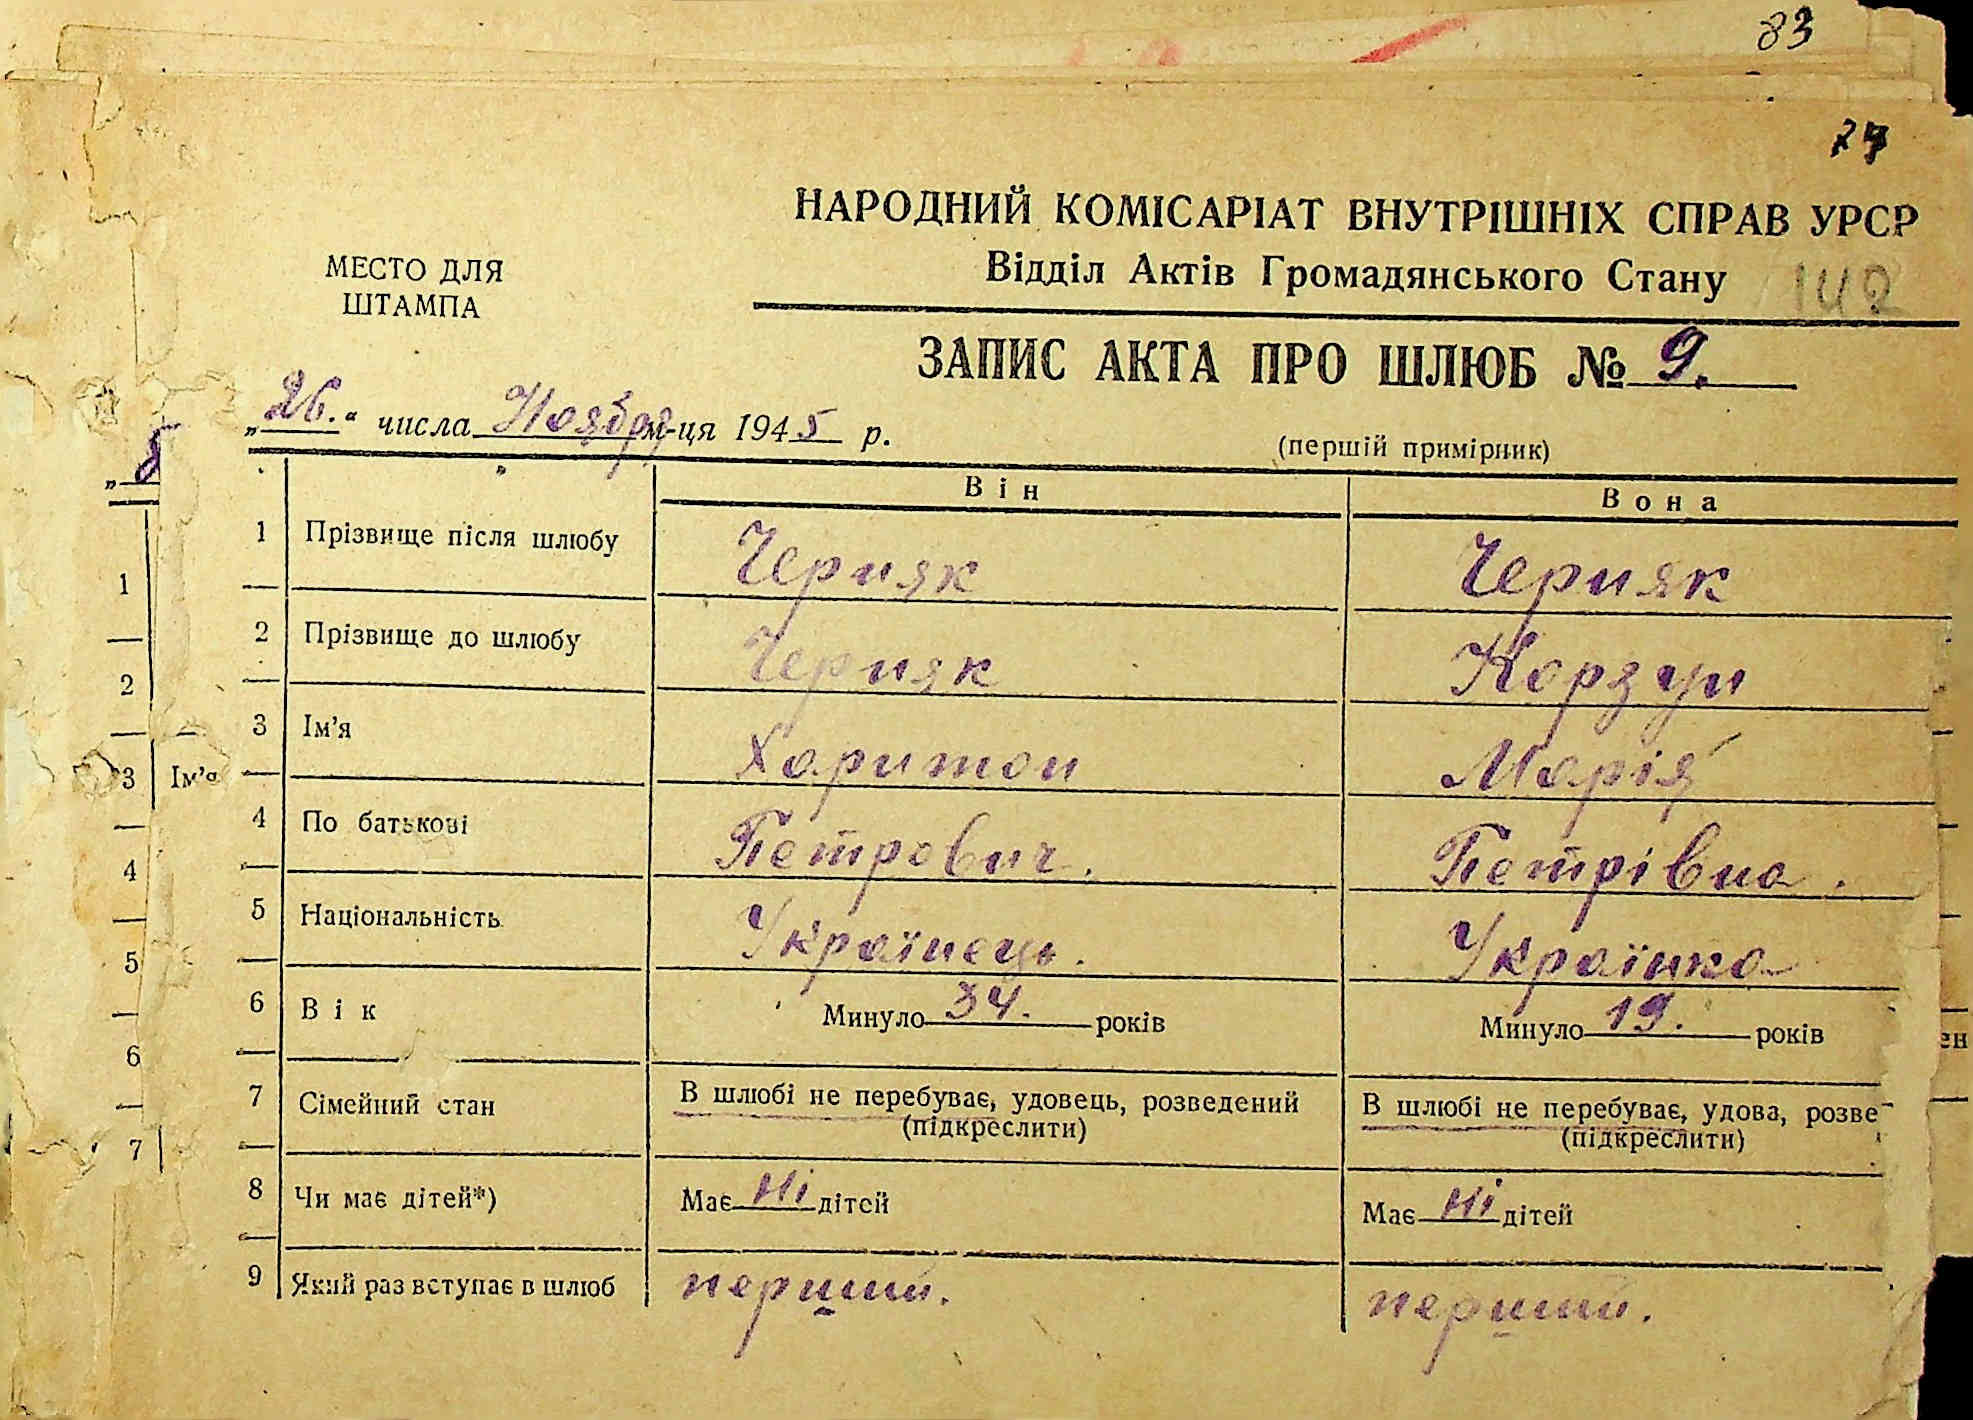 83
74
НАРОДНИЙ КОМІСАРІАТ ВНУТРІШНІХ СПРАВ УРСР
Відділ Актів Громадянського Стану
142
МЕСТО ДЛЯ
ШТАМПА
ЗАПИС АКТА ПРО ШЛЮБ № 9.
„26.“ числа Ноября м-ця 1945 р.
(першій примірник)
Він
Вона
1 Прізвище після шлюбу Черняк Черняк
2 Прізвище до шлюбу Черняк Корзун
3 Ім’я Харитон Марія
4 По батькові Петрович. Петрівна.
5 Національність Українець. Українка
6 Вік Минуло 34. років Минуло 19. років
7 Сімейний стан В шлюбі не перебуває, удовець, розведений В шлюбі не перебуває, удова, розве
(підкреслити) (підкреслити)
8 Чи має дітей*) Має Ні дітей Має Ні дітей
9 Який раз вступає в шлюб перший. перший.
„8
1
2
3 Ім’я
4
5
6
7
ен